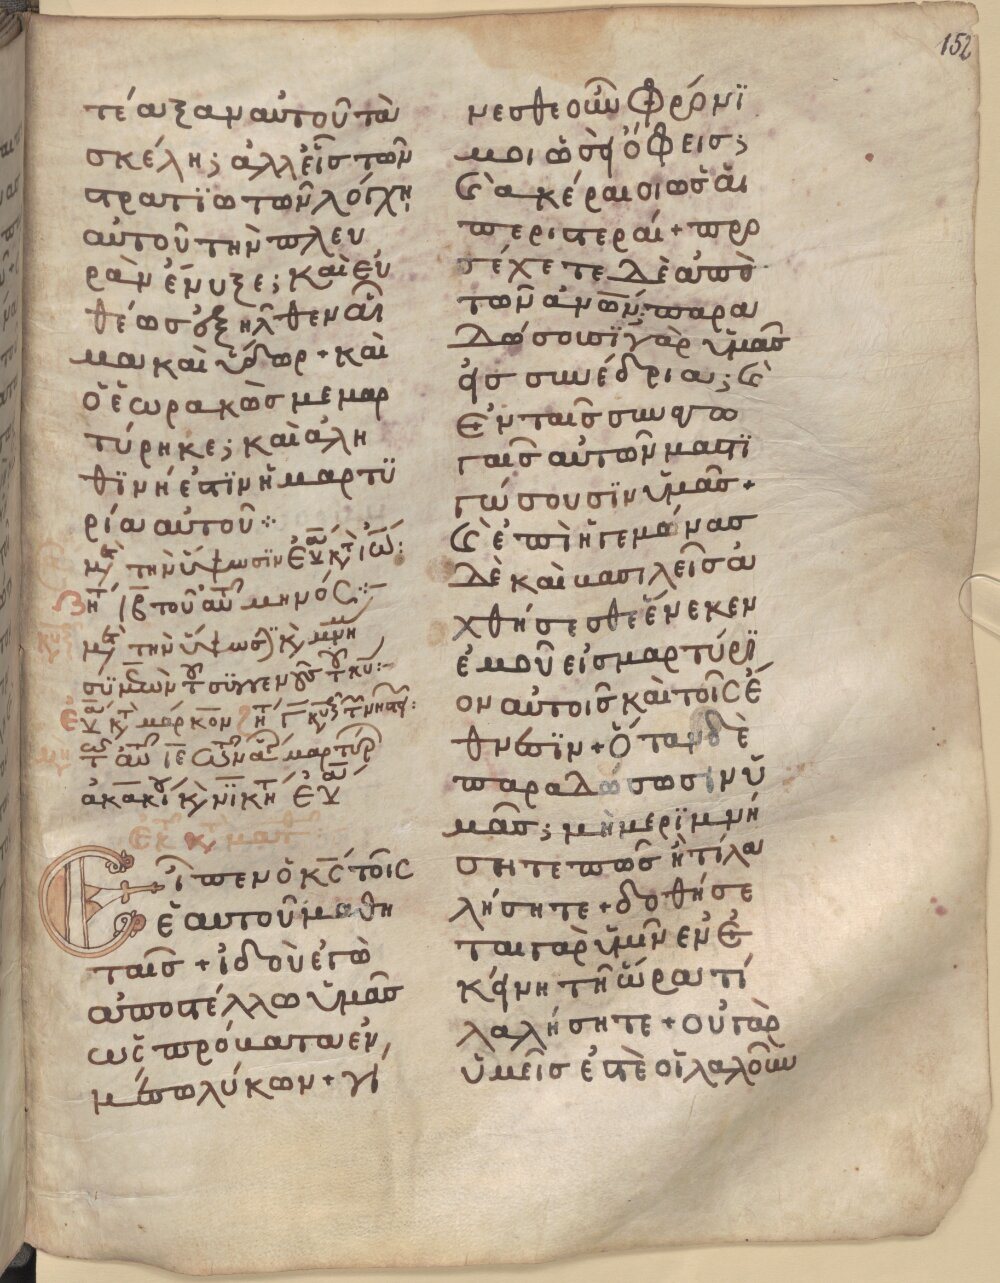 152
τέαξαν αὐτοῦ τὰ
σκέλη; ἀλλεῖς τῶν
στρατϊωτῶν λόγχη
αὐτοῦ τὴν πλευ
ρὰν ἔνυξε; καὶ εὐ
θέως ἐξῆλθεν αἷ
μα καὶ ὕδωρ + καὶ
ὁ ἑωρακὼς μεμαρ
τύρηκε; καὶ ἀλη
θϊνή ἐστϊν ἡ μαρτϋ
ρία αὐτοῦ
μτ τὴν ὕψωσϊν
τοῦ αὐτ μηνός
μτ τὴν ὕψωσ
μάρκον
μάρτυρ
Εἶπεν ὁ κς τοῖς
ἑαυτοῦ μαθη
ταῖς + ἰδοὺ ἐγὼ
ἀποστέλλω ὑμᾶς
ὡς πρόβατα ἐν
μέσω λύκων + γί
νεσθε οὖν φρόνϊ
μοι ὡς οἱ ὄφεις;
καὶ ἀκέραιοι ὡς αἱ
περιστεραί + προ
σέχετε δὲ ἀπὸ
τῶν ἀνων; παρα
δώσουσϊ γὰρ ὑμᾶς
εἰς συνέδρια; καὶ
ἐν ταῖς συναγω
γαῖς αὐτῶν μαστϊ
γώσουσϊν ὑμᾶς +
καὶ ἐπὶ ἡγεμόνας
δὲ καὶ βασιλεῖς ἀ
χθήσεσθε ἕνεκεν
ἐμοῦ εἰς μαρτύρϊ
ον αὐτοῖς καὶ τοῖς ἔ
θνεσϊν + ὅταν δὲ
παραδώσωσιν ὑ
μᾶς; μὴ μερϊμνή
σητε πῶς ἢ τί λα
λήσητε + δοθήσε
ται γὰρ ὑμῖν ἐν ἐ
κείνη τῆ ὥρα τί
λαλήσητε + οὐ γὰρ
ὑμεῖς ἐστὲ οἱ λαλοῦν